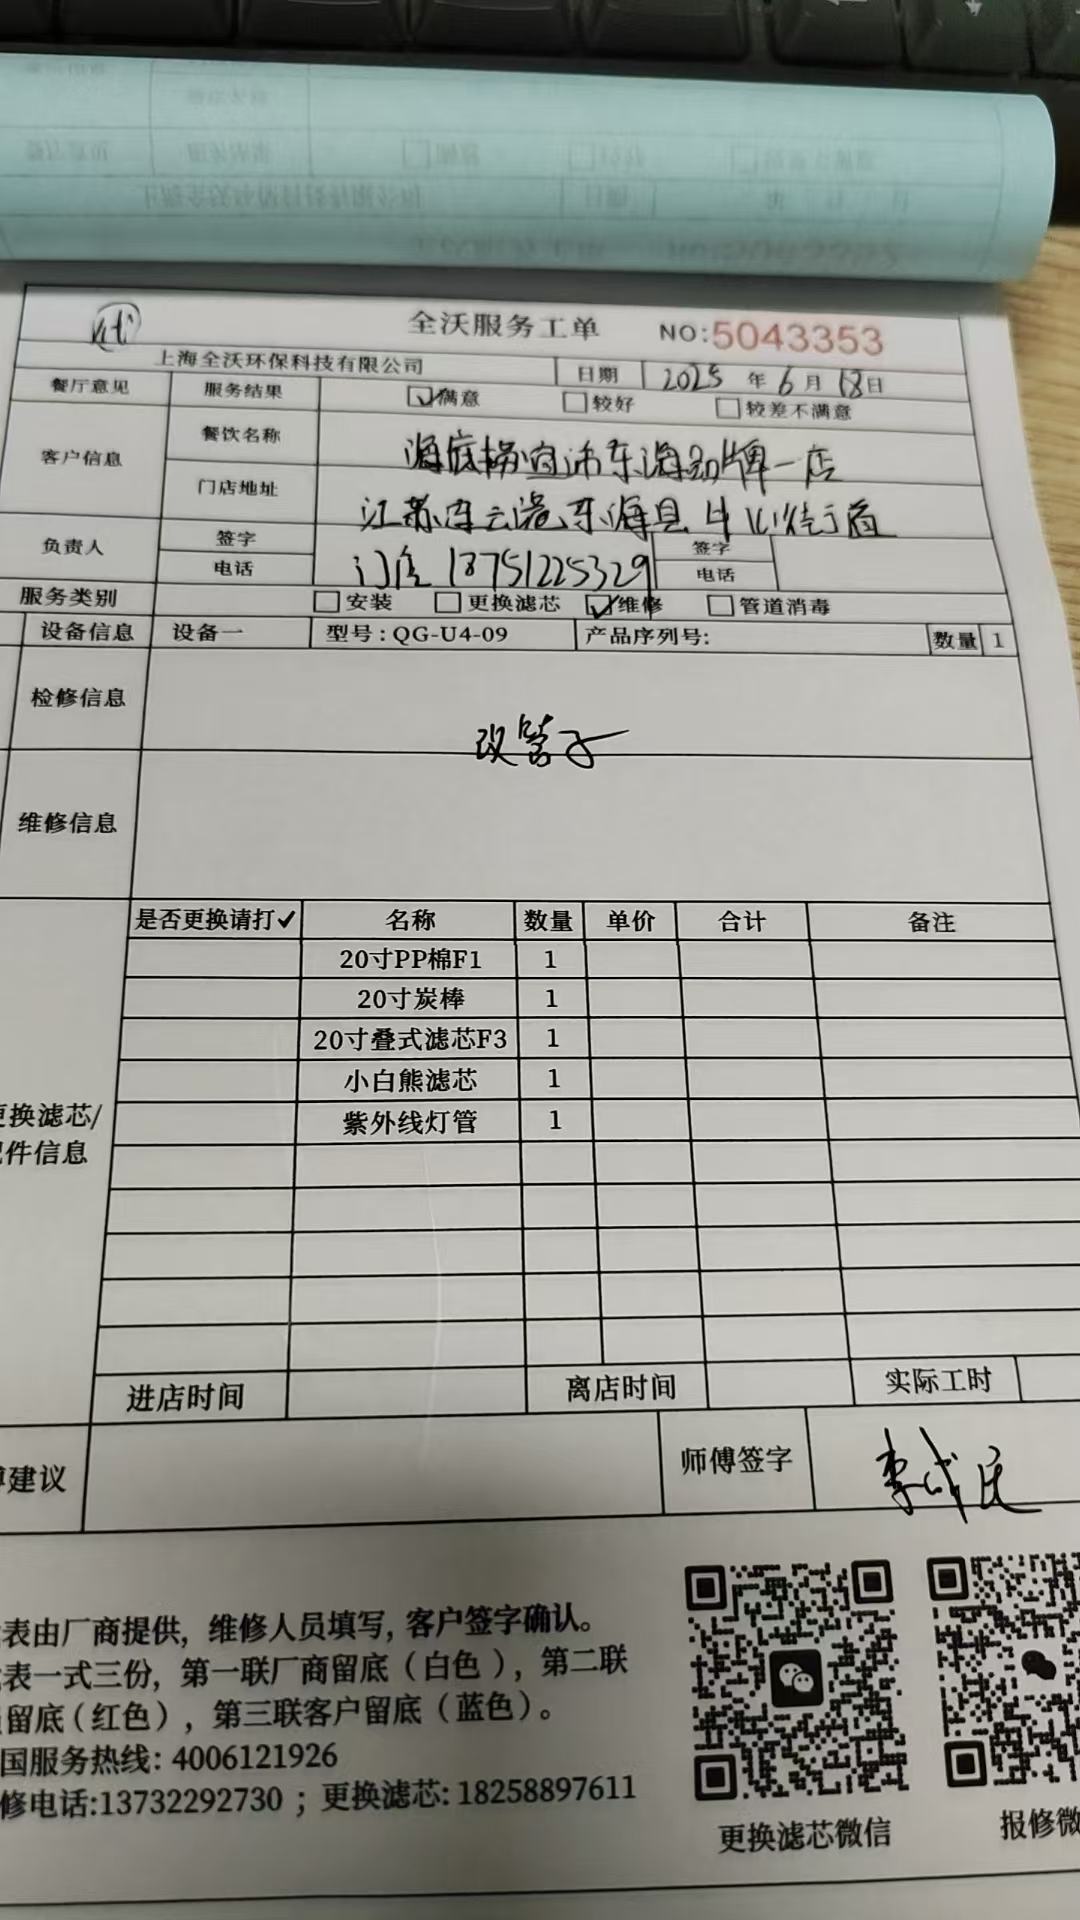 代
全沃服务工单 NO:5043353
上海全沃环保科技有限公司 日期 2025 年 6 月 18 日
餐厅意见 服务结果 ☑满意 □较好 □较差不满意
客户信息 餐饮名称 海底捞 东海 牌一店
门店地址 江苏连云港东海县牛山街道
负责人 签字 签字
电话 门店 18751225329 电话
服务类别 □安装 □更换滤芯 ☑维修 □管道消毒
设备信息 设备一 型号:QG-U4-09 产品序列号: 数量 1
检修信息
改管子
维修信息
是否更换请打✓ 名称 数量 单价 合计 备注
20寸PP棉F1 1
20寸炭棒 1
20寸叠式滤芯F3 1
小白熊滤芯 1
紫外线灯管 1
更换滤芯/
配件信息
进店时间 离店时间 实际工时
建议 师傅签字 李成庆
表由厂商提供, 维修人员填写, 客户签字确认。
表一式三份, 第一联厂商留底（白色）, 第二联
留底（红色）, 第三联客户留底（蓝色）。
国服务热线: 4006121926
修电话:13732292730 ; 更换滤芯: 18258897611
更换滤芯微信 报修微